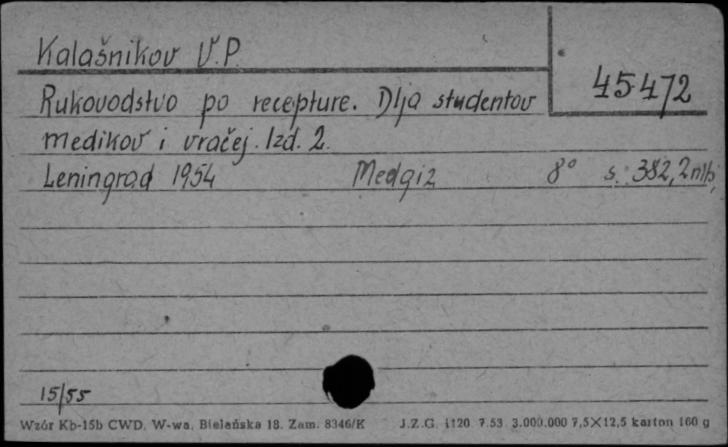 Kalašnikov V.P.
45472
Rukovodstvo po recepture. Dlja studentov
medikov i vračej. Izd. 2.
Leningrad 1954 Medgiz 8° s. 382, 2 nlb,
15/55
Wzór Kb-15b CWD, W-wa, Bielańska 18. Zam. 8346/K J.Z.G. 1120 7.53 3.000.000 7,5×12,5 karton 160 g